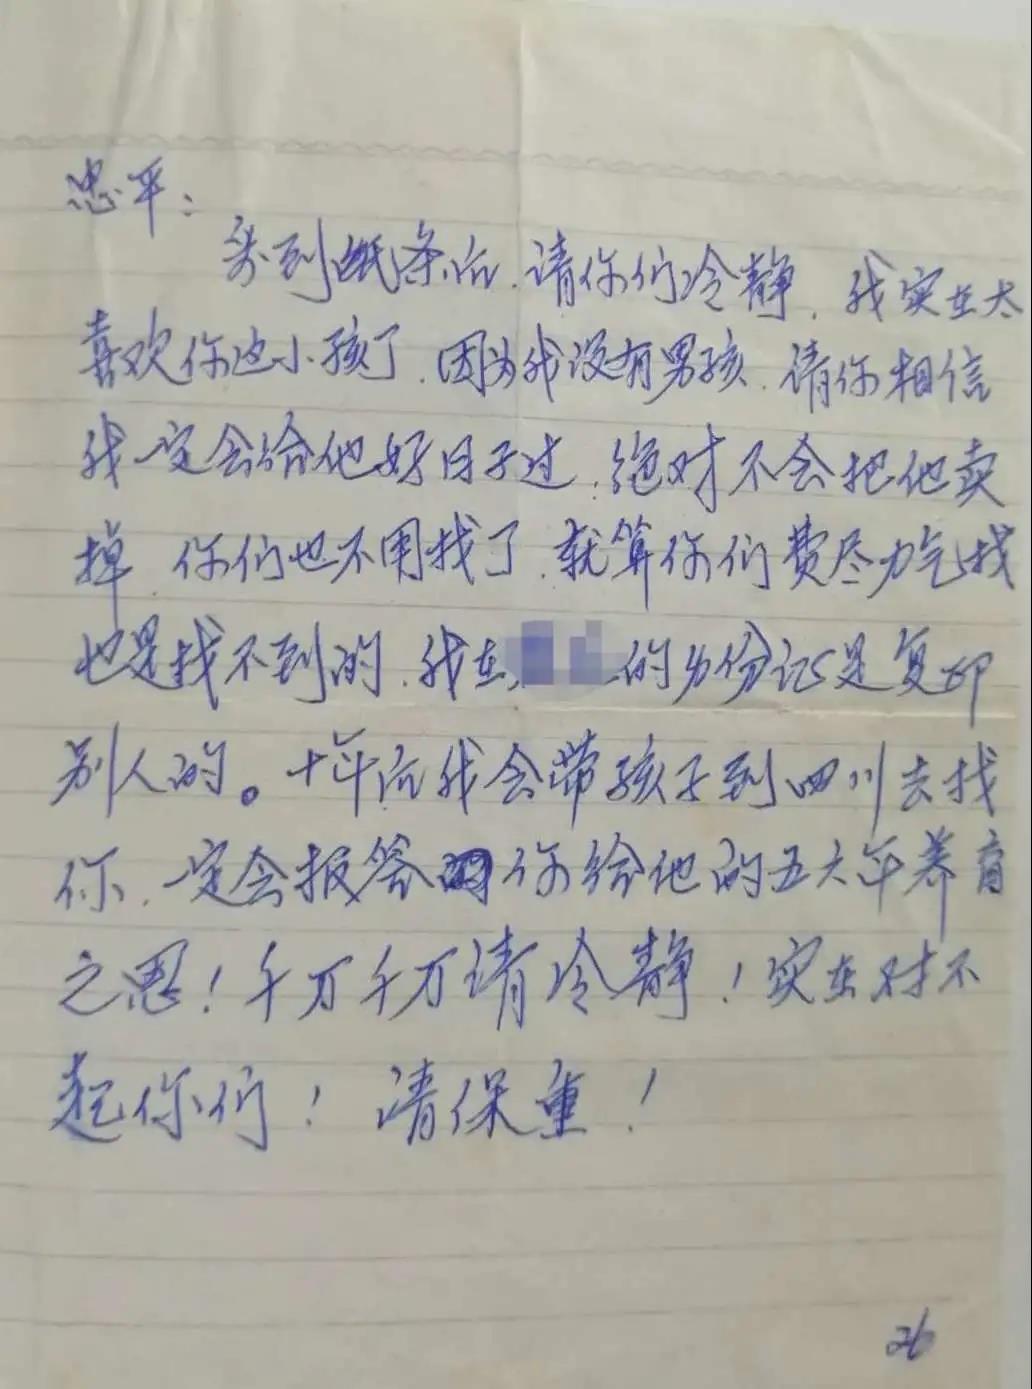 忠平：
看到纸条后.请你们冷静.我实在太
喜欢你这小孩了.因为我没有男孩.请你相信
我一定会给他好日子过.绝对不会把他卖
掉.你们也不用找了.就算你们费尽力气找
也是找不到的.我在的身份证是复印
别人的。十年后我会带孩子到四川去找
你.一定会报答你给他的五六年养育
之恩！千万千万请冷静！实在对不
起你们！请保重！
26